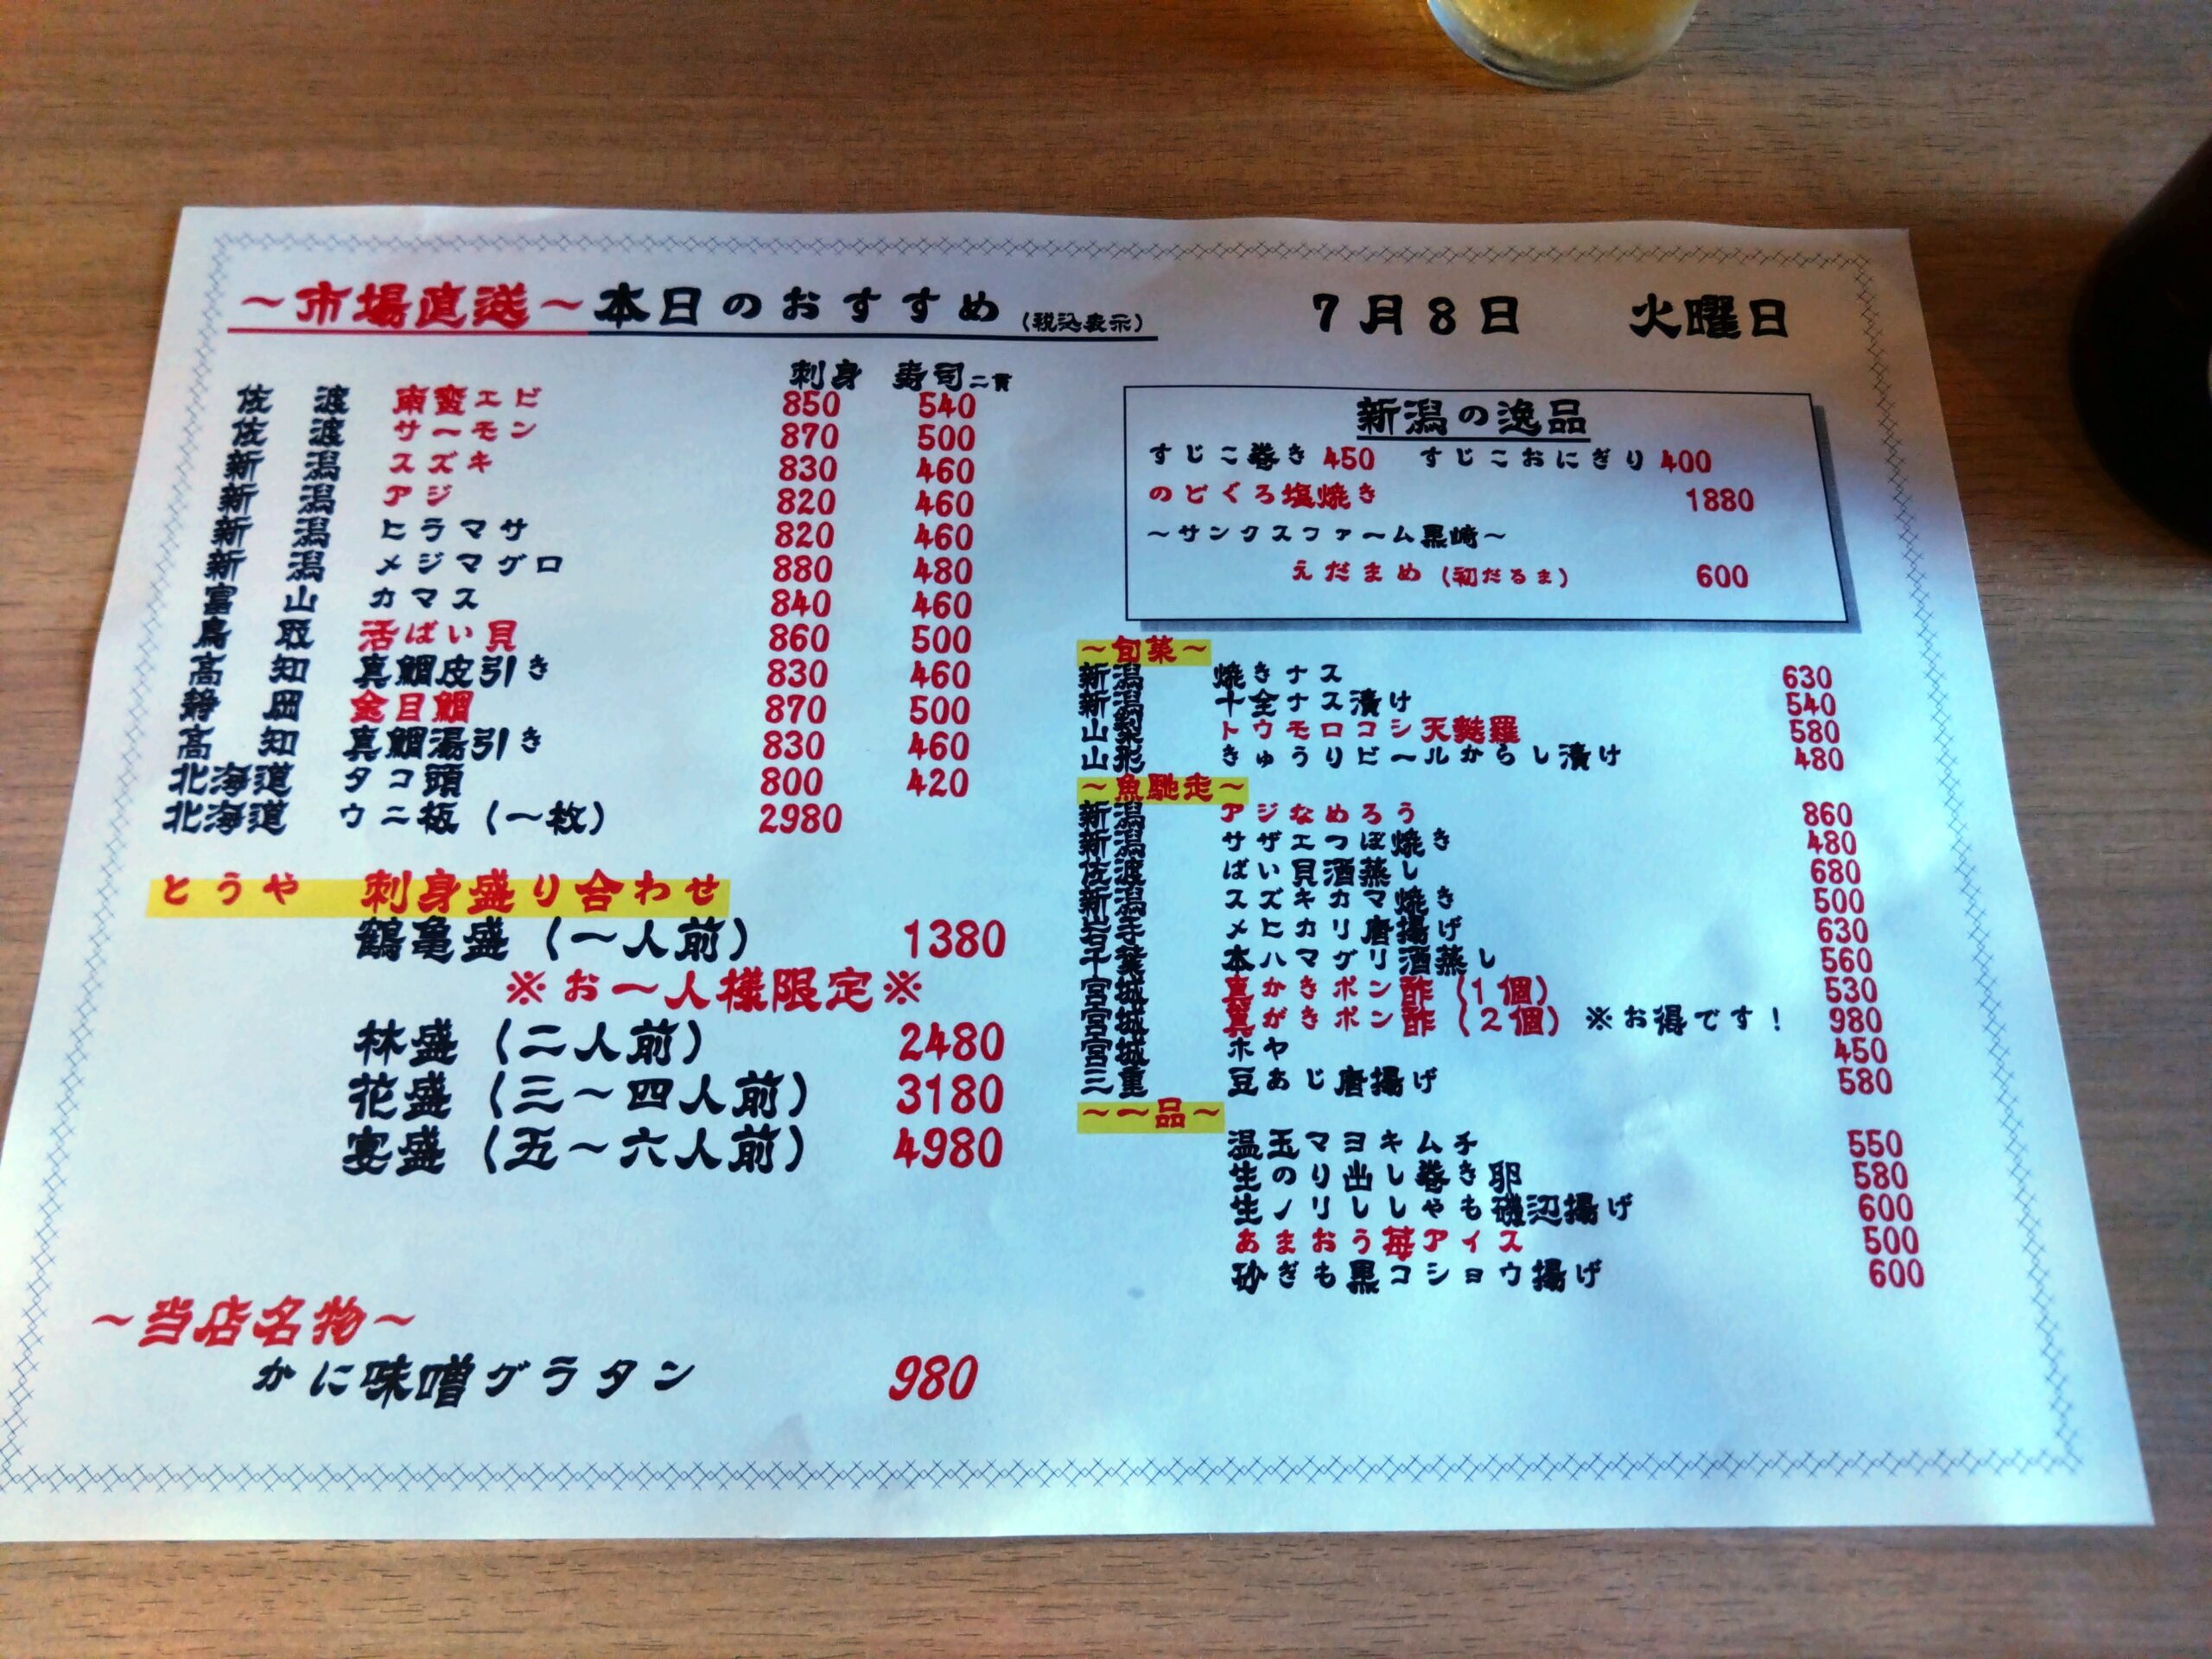 ～市場直送～本日のおすすめ（税込表示）
7月8日　火曜日
刺身　寿司二貫
佐渡　南蛮エビ　850　540
佐渡　サーモン　870　500
新潟　スズキ　830　460
新潟　アジ　820　460
新潟　ヒラマサ　820　460
新潟　メジマグロ　880　480
富山　カマス　840　460
鳥取　活ばい貝　860　500
高知　真鯛皮引き　830　460
静岡　金目鯛　870　500
高知　真鯛湯引き　830　460
北海道　タコ頭　800　420
北海道　ウニ板（一枚）　2980
とうや　刺身盛り合わせ
鶴亀盛（一人前）　1380
※お一人様限定※
林盛（二人前）　2480
花盛（三～四人前）　3180
宴盛（五～六人前）　4980
～当店名物～
かに味噌グラタン　980
新潟の逸品
すじこ巻き 450　すじこおにぎり 400
のどぐろ塩焼き　1880
～サンクスファーム黒崎～
えだまめ（初だるま）　600
～旬菜～
新潟　焼きナス　630
新潟　十全ナス漬け　540
山梨　トウモロコシ天麩羅　580
山形　きゅうりビールからし漬け　480
～魚馳走～
新潟　アジなめろう　860
新潟　サザエつぼ焼き　480
佐渡　ばい貝酒蒸し　680
新潟　スズキカマ焼き　500
岩手　メヒカリ唐揚げ　630
千葉　本ハマグリ酒蒸し　560
宮城　真かきポン酢（1個）　530
宮城　真がきポン酢（2個）※お得です！　980
宮城　ホヤ　450
三重　豆あじ唐揚げ　580
～一品～
温玉マヨキムチ　550
生のり出し巻き卵　580
生ノリししゃも磯辺揚げ　600
あまおう苺アイス　500
砂ぎも黒コショウ揚げ　600